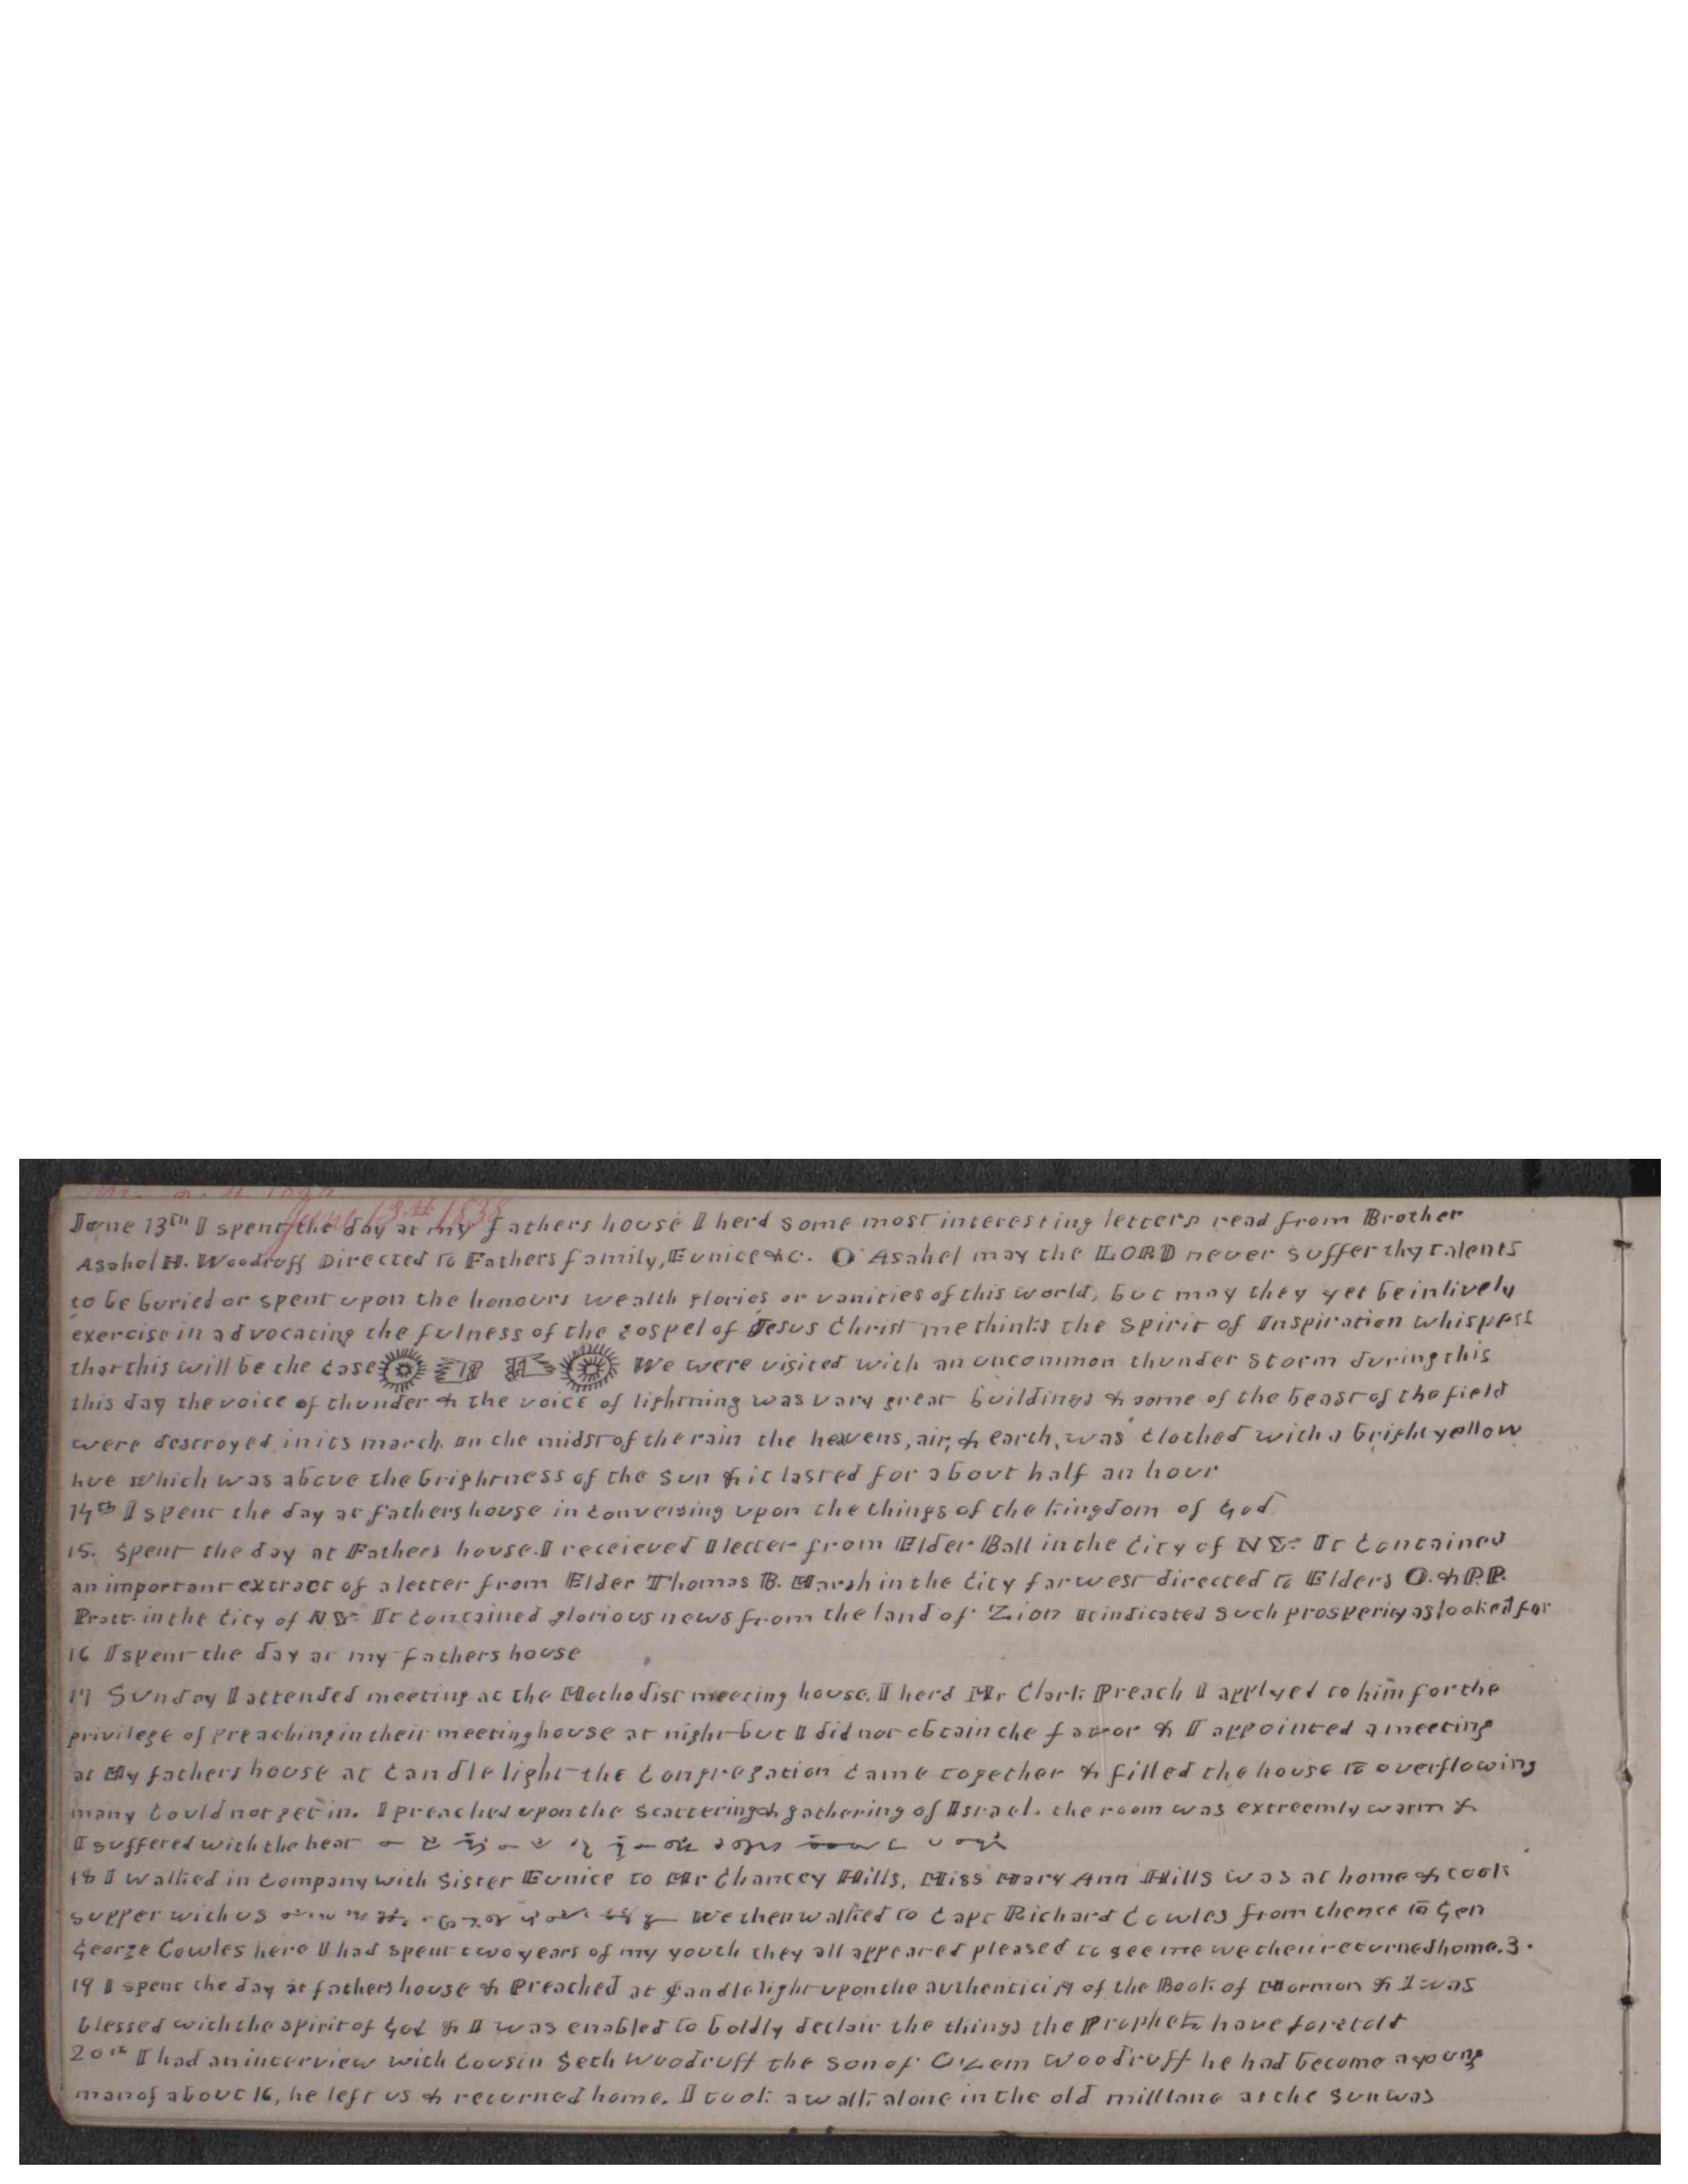 June 13th 1838
June 13th I spent the day at my fathers house I herd some most interesting letters read from Brother
Asahel H. Woodruff Directed to Fathers family, Eunice &c. O Asahel may the LORD never suffer thy talents
to be buried or spent upon the honours wealth glories or vanities of this world, but may they yet be in lively
exercise in advocating the fulness of the gospel of Jesus Christ me thinks the Spirit of Inspiration whispers
that this will be the case We were visited with an uncommon thunder storm during this
this day the voice of thunder & the voice of lightning was vary great buildings & some of the beast of the field
were destroyed in its march. In the midst of the rain the heavens, air, & earth, was clothed with a bright yellow
hue which was above the brightness of the sun & it lasted for about half an hour
14th I spent the day at fathers house in conversing upon the things of the kingdom of God.
15. Spent the day at Fathers house. I receieved a letter from Elder Ball in the City of NY. It contained
an important extract of a letter from Elder Thomas B. Marsh in the City far west directed to Elders O. & P.P.
Pratt in the City of NY. It contained glorious news from the land of Zion it indicated such prosperity as looked for
16 I spent the day at my fathers house
17 Sunday I attended meeting at the Methodist meeting house. I herd Mr Clark Preach I applyed to him for the
privilege of preaching in their meeting house at night but I did not obtain the favor & I appointed a meeting
at My fathers house at candle light the congregation came together & filled the house to overflowing
many could not get in. I preached upon the scattering & gathering of Israel. the room was extreemly warm &
I suffered with the heat
18 I walked in company with Sister Eunice to Mr Chancey Hills, Miss Mary Ann Hills was at home & took
supper with us We then walked to Capt Richard Cowles from thence to Gen
George Cowles here I had spent two years of my youth they all appeared pleased to see me we then returned home. 3.
19 I spent the day at fathers house & Preached at candle light upon the authenticity of the Book of Mormon & I was
blessed with the spirit of God & I was enabled to boldly declair the things the Prophets have foretold
20th I had an interview with Cousin Seth Woodruff the son of Ozem Woodruff he had become a young
man of about 16, he left us & returned home. I took a walk alone in the old mill lane as the sun was